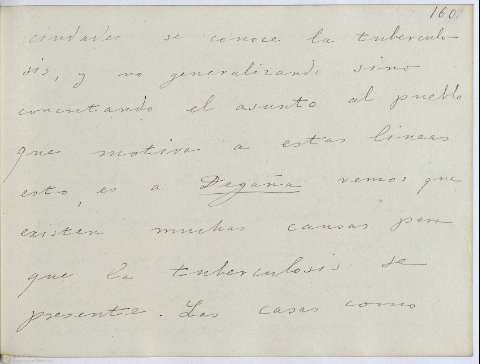 160
ciudades se conoce la tuberculo-
sis, y no generalizando sino
concretando el asunto al pueblo
que motiva a estas lineas
esto, es a Degaña vemos que
existen muchas causas para
que la tuberculosis se
presente. Las casas como